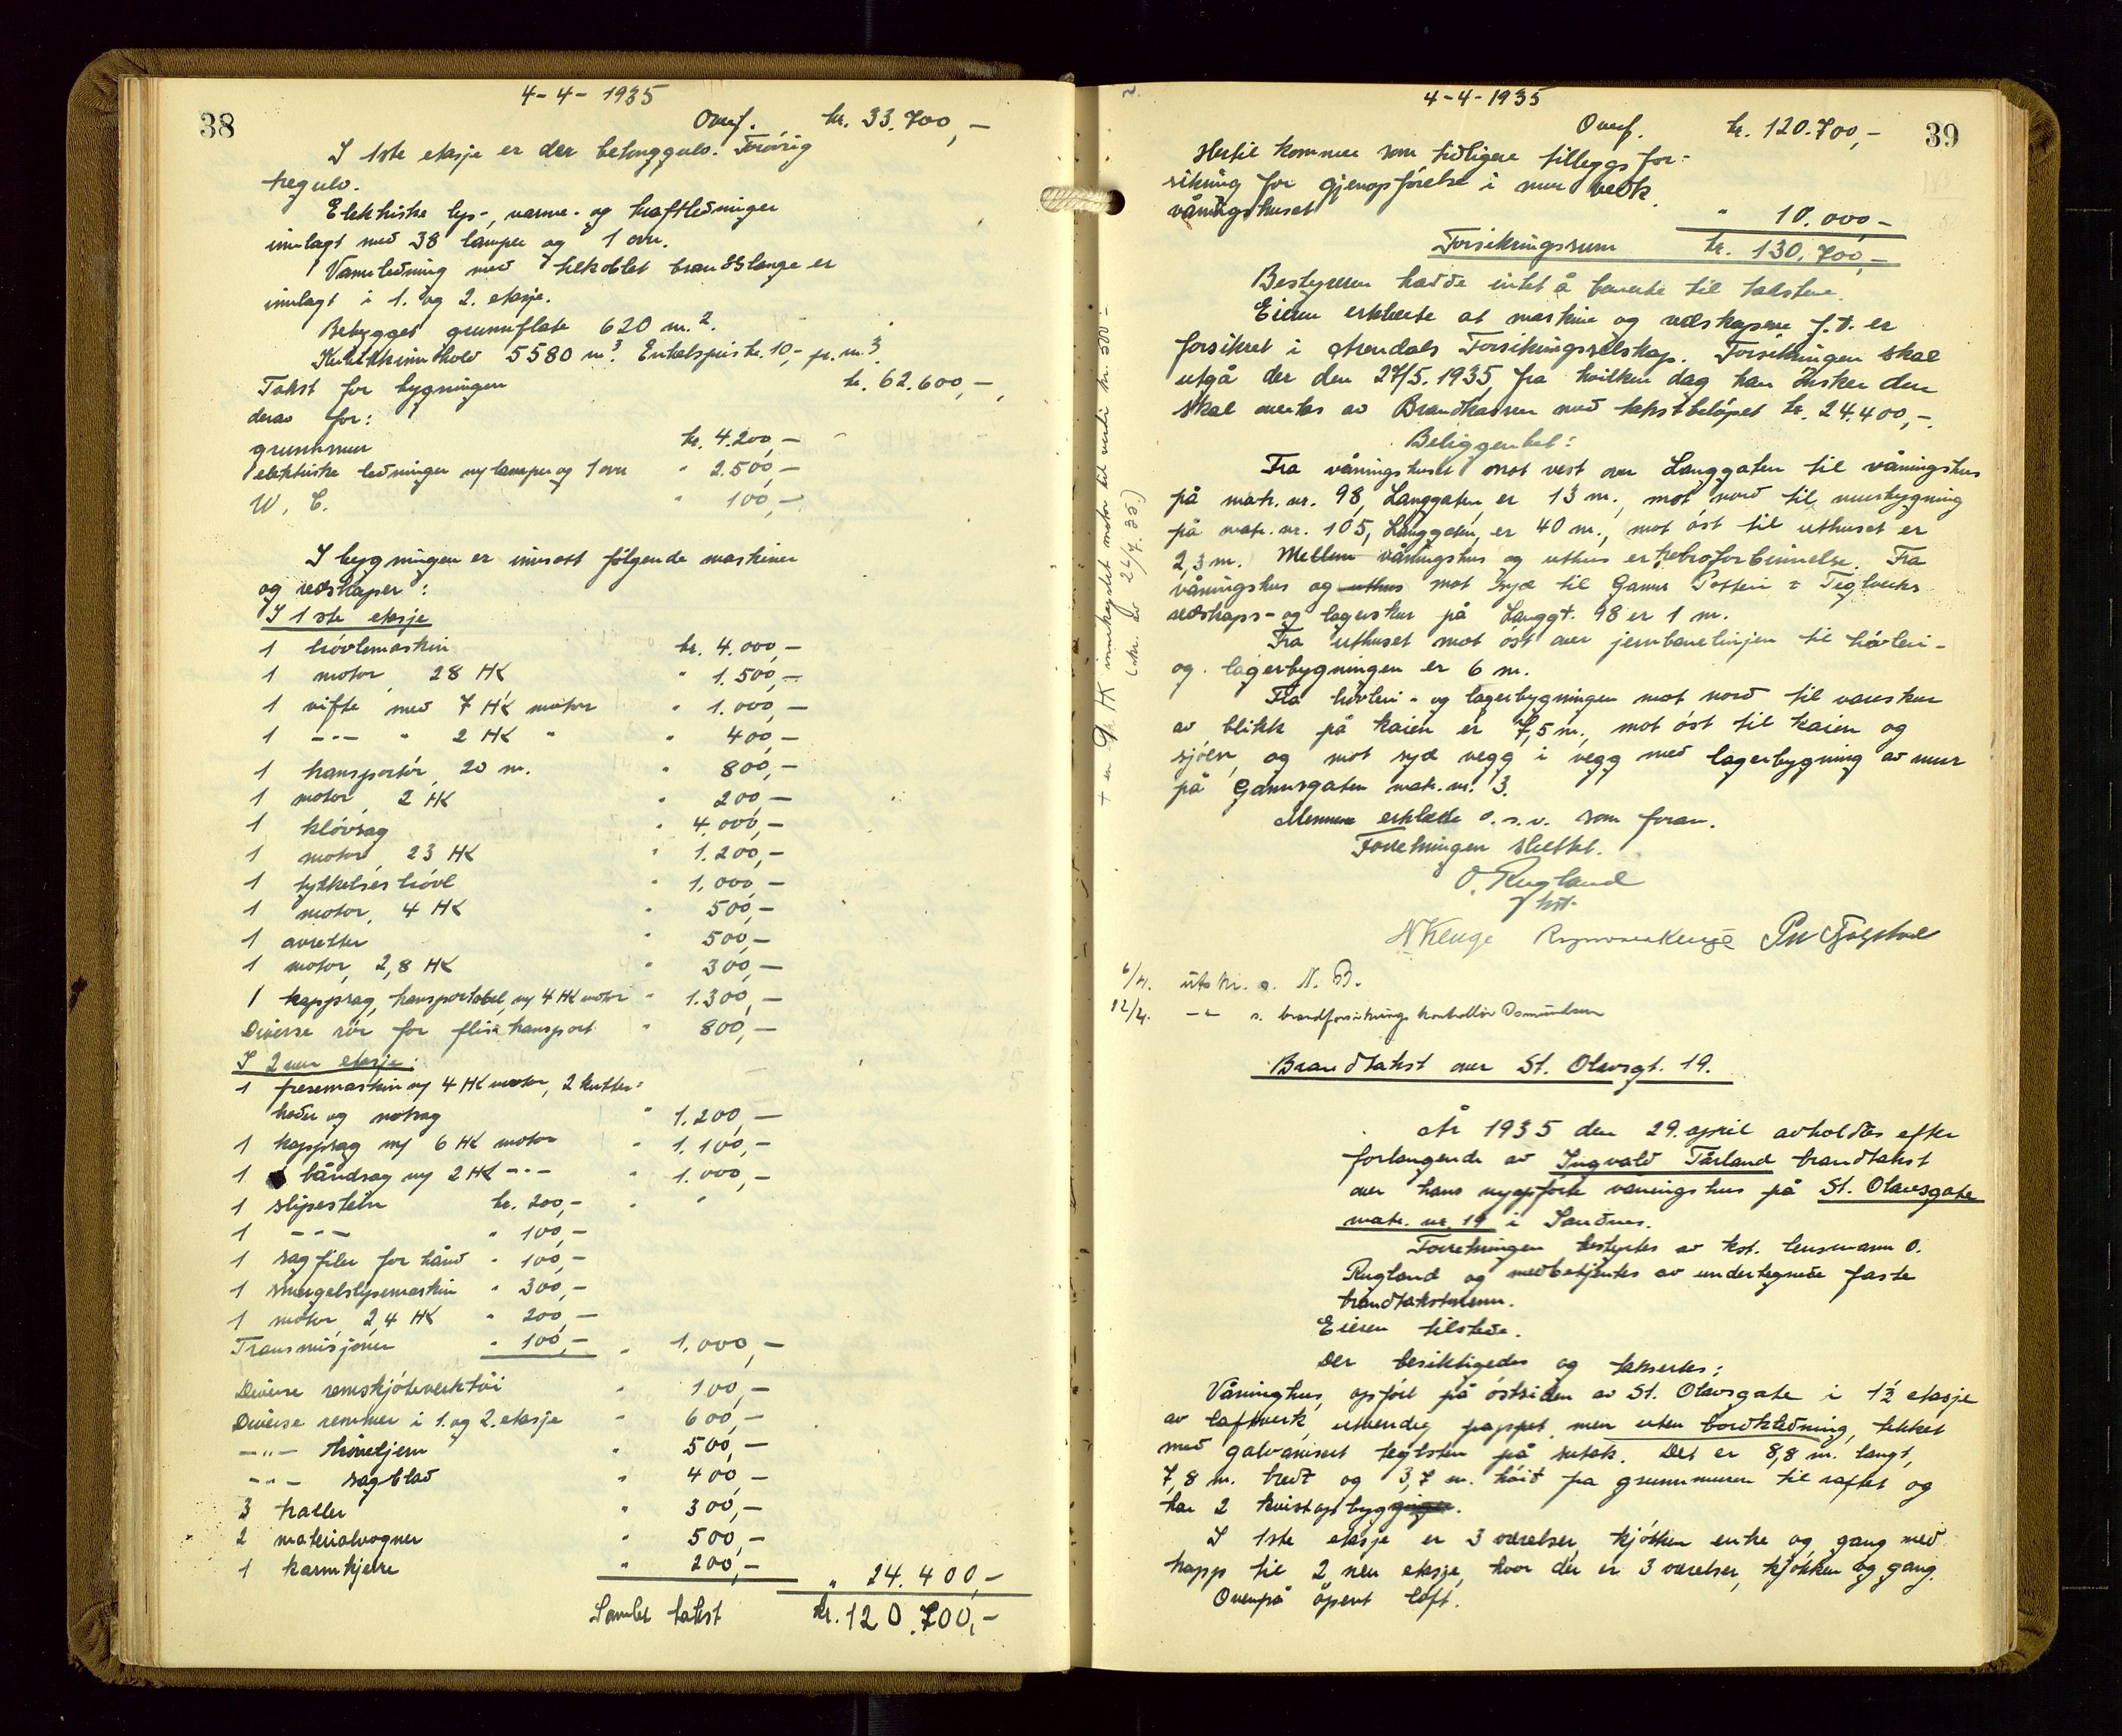 38
4-4-1935
Overf. kr. 33.700,-
I 1ste etasje er der betonggulv. Forøvrig
tregulv.
Elektriske lys-, varme- og kraftledninger
innlagt med 38 lamper og 1 ovn.
Vannledning med tilkoblet brandslange er
innlagt i 1. og 2. etasje.
Bebygget grunnflate 620 m.²
Kubikkinnhold 5580 m³. Enhetspris kr. 10,- pr. m³.
Takst for bygningen kr. 62.600,-
derav for:
grunnmur kr. 4.200,-
elektriske ledninger m/ lamper og 1 ovn " 2.500,-
W. C. " 100,-
I bygningen er innsatt følgende maskiner
og redskaper:
I 1ste etasje
1 høvlemaskin kr. 4.000,-
1 motor, 28 HK " 1.500,-
1 vifte med 7 HK motor " 1.000,-
1 -"- " 2 HK " " 400,-
1 transportør, 20 m. " 800,-
1 motor, 2 HK " 200,-
1 kløvsag " 4.000,-
1 motor, 23 HK " 1.200,-
1 tykkelseshøvl " 1.000,-
1 motor, 4 HK " 500,-
1 avretter " 500,-
1 motor, 2,8 HK " 300,-
1 kappsag, transportabel, m/ 4 HK motor " 1.300,-
Diverse rør for flistransport " 800,-
I 2nen etasje:
1 fresemaskin m/ 4 HK motor, 2 kutter-
heder og notsag " 1.200,-
1 kappsag m/ 6 HK motor " 1.100,-
1 båndsag m/ 2 HK -"- " 1.000,-
1 slipesten kr. 200,- " "
1 -"- " 100,-
1 sagfiler for hånd " 100,-
1 smergelslipemaskin " 300,-
1 motor 2,4 HK " 200,-
Transmisjoner " 100,- " 1.000,-
Diverse remskjøteverktøi " 100,-
Diverse remmer i 1. og 2. etasje " 600,-
-"- høveljern " 500,-
-"- sagblad " 400,-
3 traller " 300,-
2 materialvogner " 500,-
1 karmkjerre " 200,- " 24.400,-
Samlet takst kr. 120.700,-
+ en 9 HK innkapslet motor til verdi kr. 500-
(skr. av 24/7.35.)
39
4-4-1935
Overf. kr. 120.700,-
Hertil kommer som tidligere tilleggsfor-
sikring for gjenopførelse i mur vedk.
våningshuset " 10.000,-
Forsikringssum kr. 130.700,-
Bestyreren hadde intet å bemerke til takstene.
Eieren erklærte at maskiner og redskapene f.t. er
forsikret i Arendals Forsikringsselskap. Forsikringen skal
utgå der den 27/5.1935, fra hvilken dag han ønsker den
skal overtas av Brandkassen med takstbeløpet kr. 24.400,-.
Beliggenhet:
Fra våningshuset mot vest over Langgaten til våningshus
på matr. nr. 98, Langgaten, er 13 m., mot nord til murbygning
på matr. nr. 105, Langgaten, er 40 m., mot øst til uthuset er
2,3 m. Mellem våningshus og uthus er trebroforbinnelse. Fra
våningshus og uthus mot syd til Gann Potteri & Teglverks
redskaps- og lagerskur på Langgt. 98 er 1 m.
Fra uthuset mot øst over jernbanelinjen til høvleri-
og lagerbygningen er 6 m.
Fra høvleri- og lagerbygningen mot nord til vareskur
av blikk på kaien er 7,5 m., mot øst til kaien og
sjøen, og mot syd vegg i vegg med lagerbygning av mur
på Gannsgaten matr. nr. 3.
Mennene erklærte o.s.v. som foran.
Forretningen sluttet.
O. Rugland
kst.
6/4. utskr. s. N. B.
12/4. -"- s. brandforsikrings kontrollør
Brandtakst over St. Olavsgt. 19.
År 1935 den 29. april avholdtes efter
forlangende av Ingvald Tårland brandtakst
over hans nyopførte våningshus på St. Olavsgate
matr. nr. 19 i Sandnes.
Forretningen bestyrtes av kst. lensmann O.
Rugland og medbetjentes av undertegnede faste
brandtakstmenn.
Eieren tilstede.
Der besiktigedes og taksertes:
Våninghus, opført på østsiden av St. Olavsgate i 1½ etasje
av laftverk, utvendig pappet, men uten bordkledning, tekket
med galvanisert teglsten på sutak. Det er 8,8 m. langt,
7,8 m. bredt og 3,7 m. høit fra grunnmuren til raftet og
har 2 kvistopbygg.
I 1ste etasje er 3 værelser, kjøkken entre og gang med
trapp til 2 nen etasje, hvor der er 3 værelser, kjøkken og gang.
Ovenpå åpent loft.